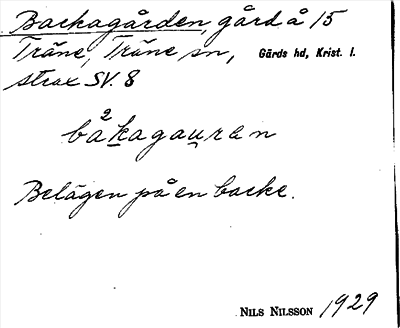 Backagården, gård å 15
Träne, Träne sn, Gärds hd, Krist. l.
strax SV. 8
2
båkagauren
Belägen på en backe.
NILS NILSSON 1929